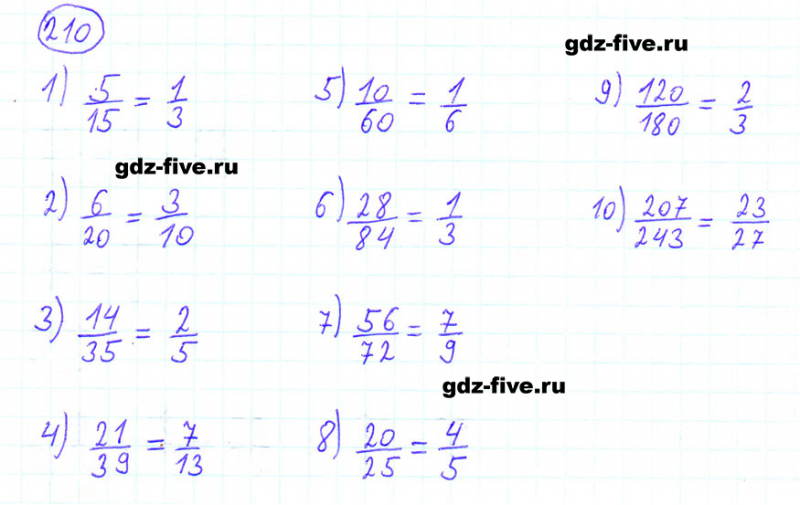 210
gdz-five.ru
1) 5/15 = 1/3
5) 10/60 = 1/6
9) 120/180 = 2/3
gdz-five.ru
2) 6/20 = 3/10
6) 28/84 = 1/3
10) 207/243 = 23/27
3) 14/35 = 2/5
7) 56/72 = 7/9
gdz-five.ru
4) 21/39 = 7/13
8) 20/25 = 4/5